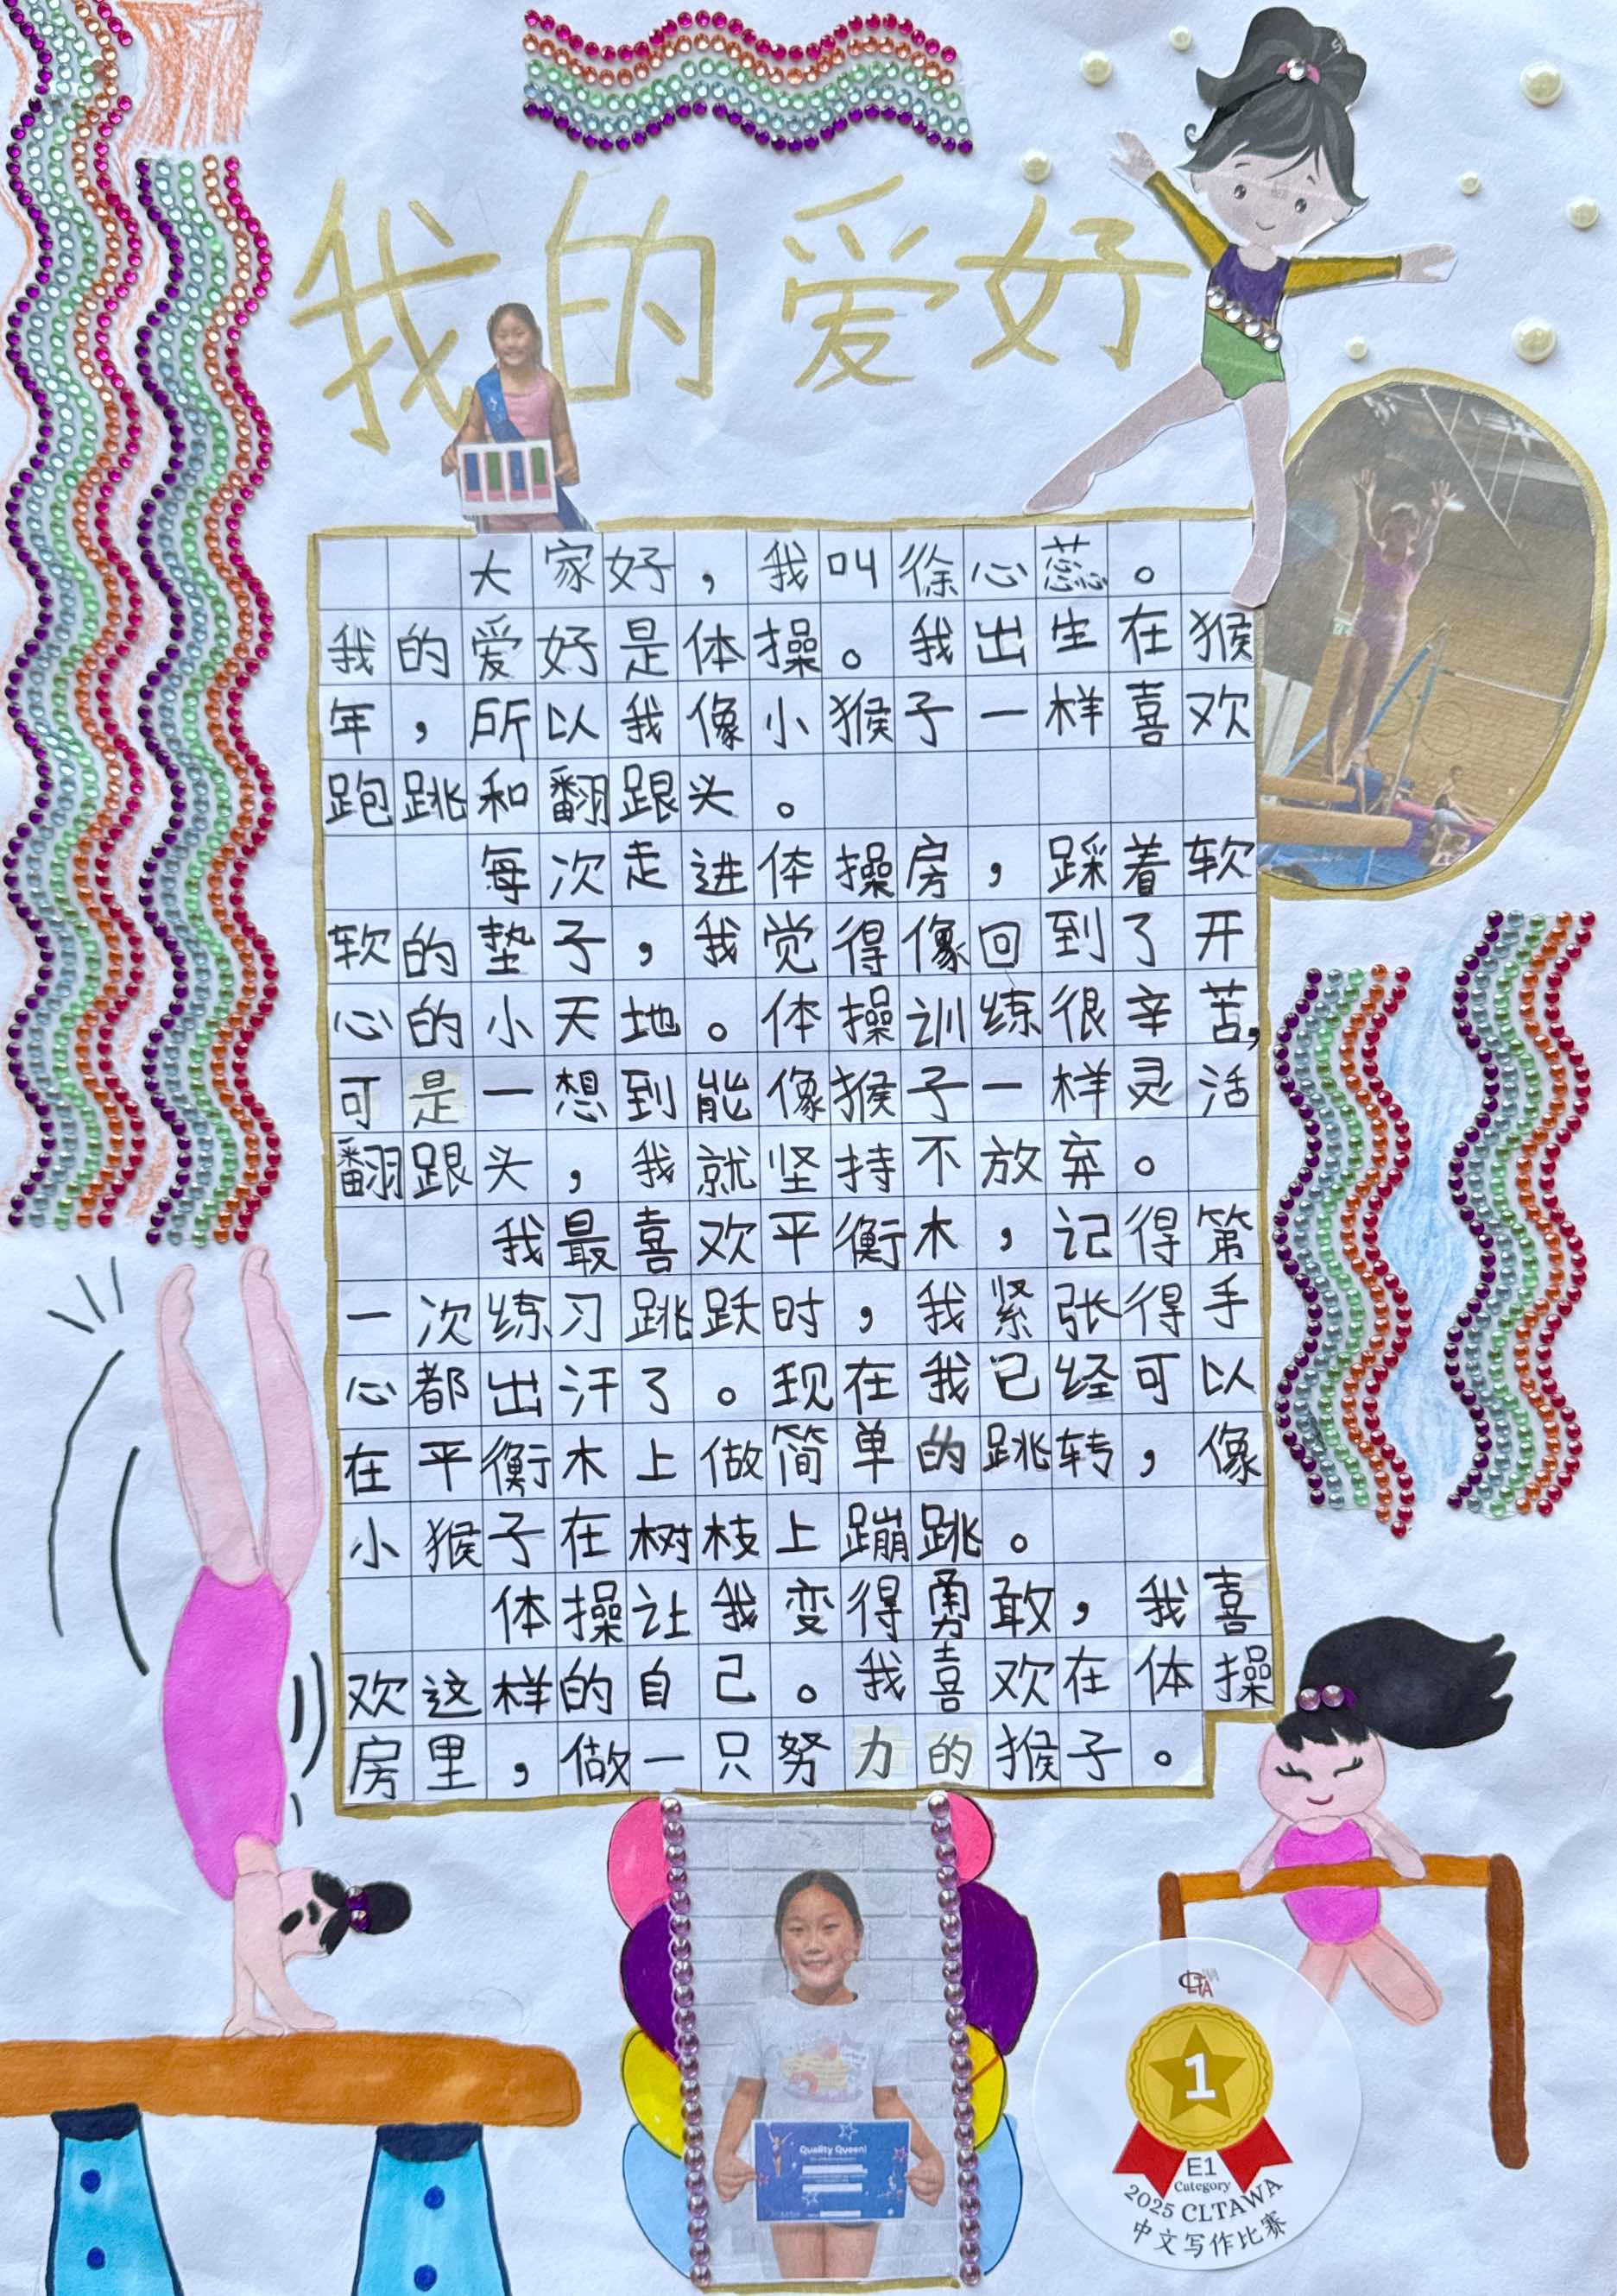 我的爱好
大家好，我叫徐心蕊。
我的爱好是体操。我出生在猴
年，所以我像小猴子一样喜欢
跑跳和翻跟头。
每次走进体操房，踩着软
软的垫子，我觉得像回到了开
心的小天地。体操训练很辛苦，
可是一想到能像猴子一样灵活
翻跟头，我就坚持不放弃。
我最喜欢平衡木，记得第
一次练习跳跃时，我紧张得手
心都出汗了。现在我已经可以
在平衡木上做简单的跳转，像
小猴子在树枝上蹦跳。
体操让我变得勇敢，我喜
欢这样的自己。我喜欢在体操
房里，做一只努力的猴子。
Quality Queen!
CLTA
1
E1
Category
2025 CLTAWA
中文写作比赛